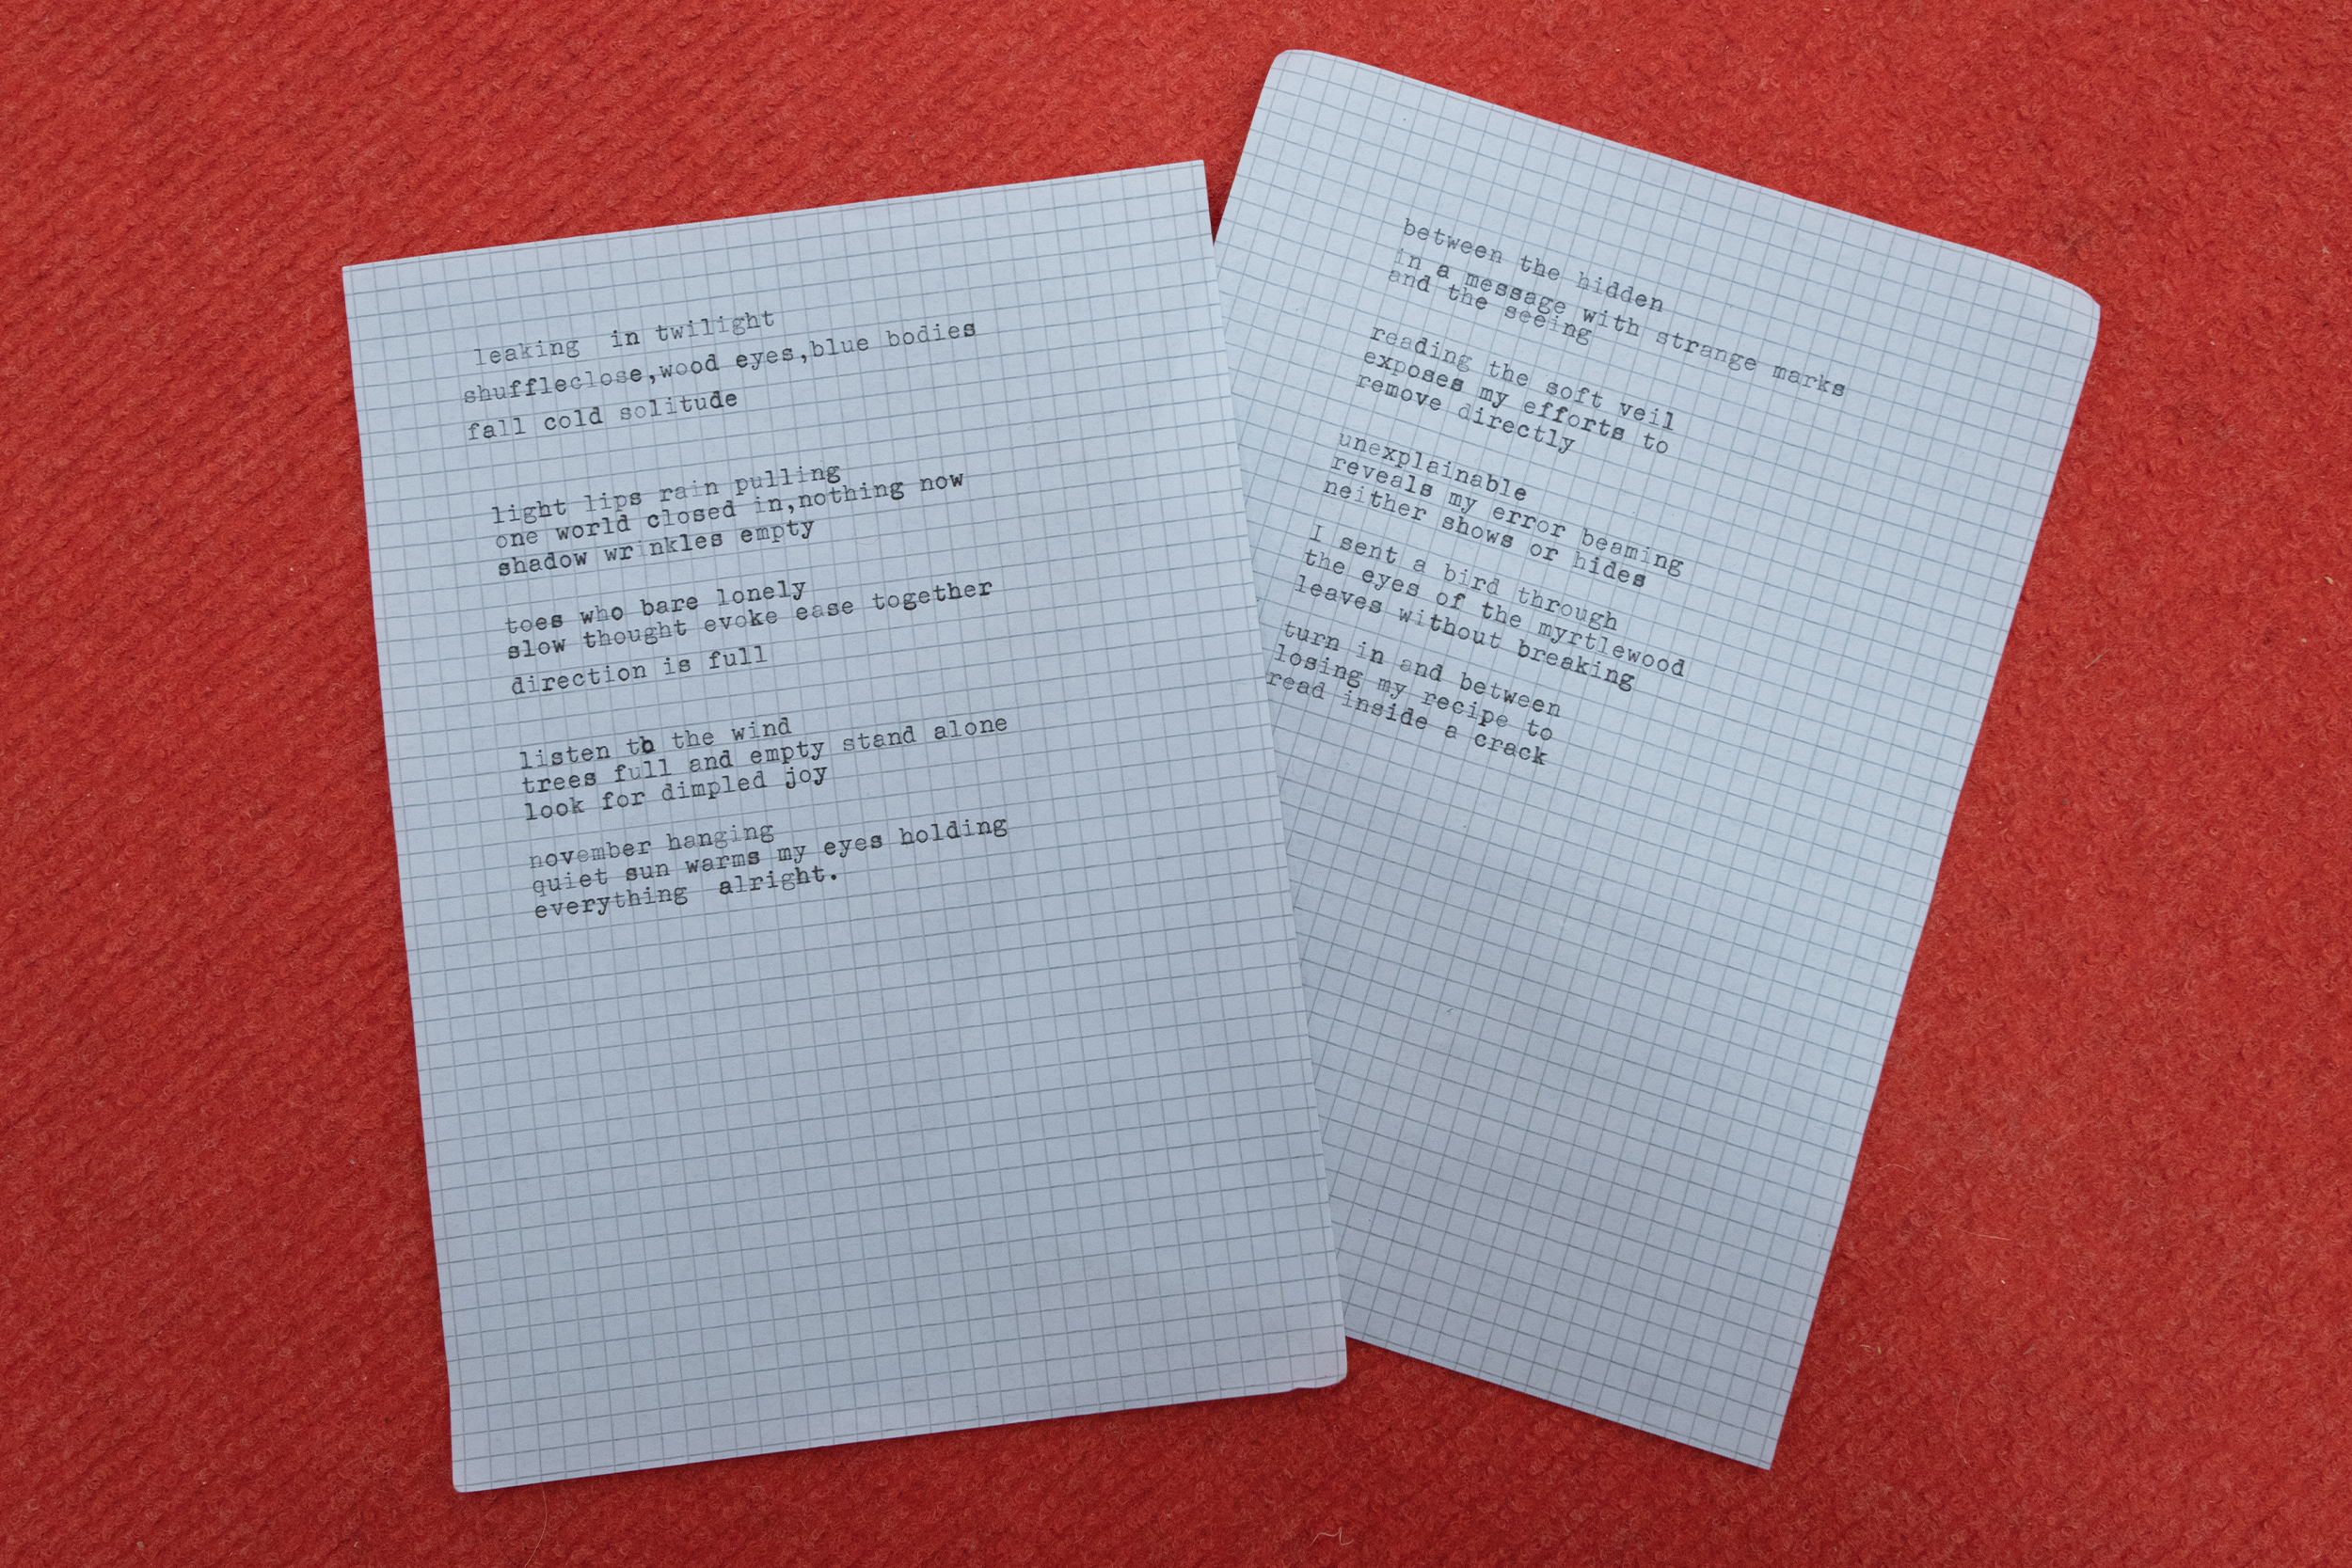 leaking  in twilight
shuffleclose,wood eyes,blue bodies
fall cold solitude
light lips rain pulling
one world closed in,nothing now
shadow wrinkles empty
toes who bare lonely
slow thought evoke ease together
direction is full
listen to the wind
trees full and empty stand alone
look for dimpled joy
november hanging
quiet sun warms my eyes holding
everything  alright.
between the hidden
in a message with strange marks
and the seeing
reading the soft veil
exposes my efforts to
remove directly
unexplainable
reveals my error beaming
neither shows or hides
I sent a bird through
the eyes of the myrtlewood
leaves without breaking
turn in and between
losing my recipe to
read inside a crack